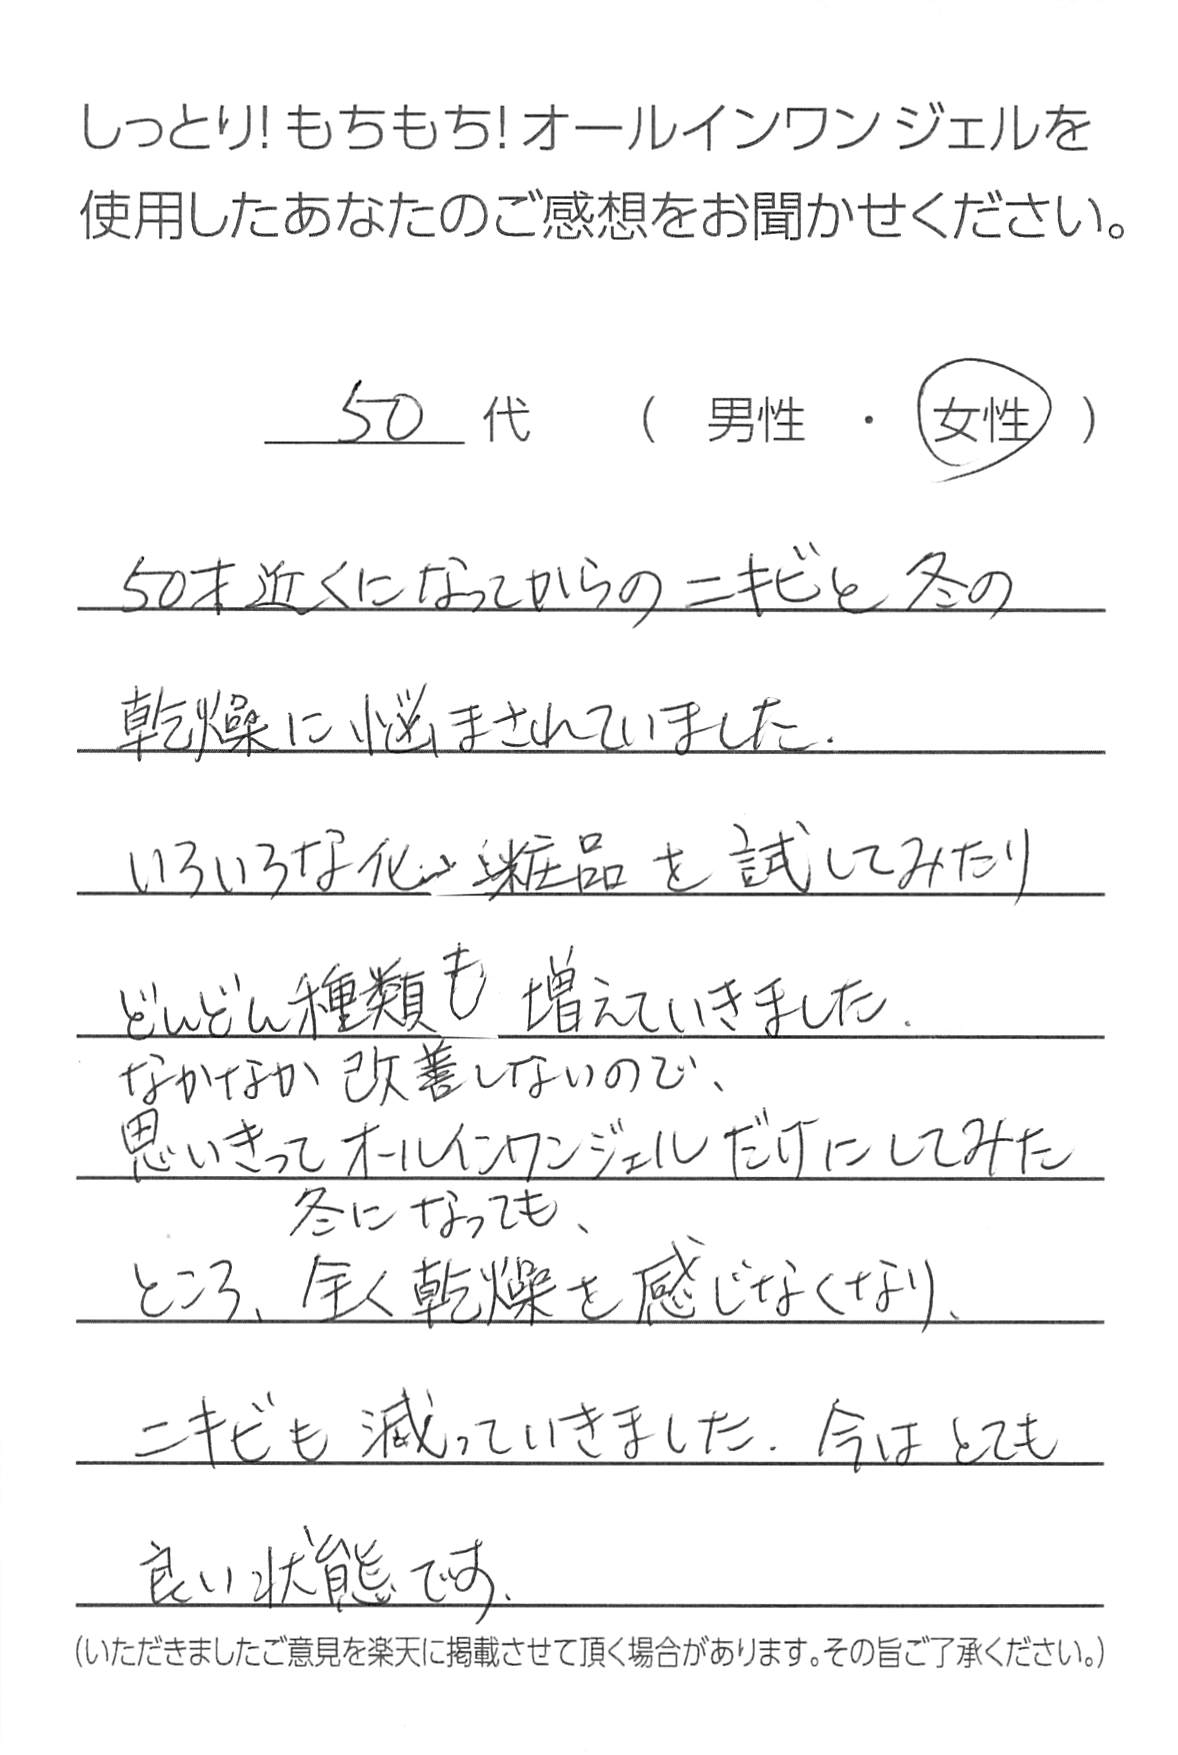 しっとり！もちもち！オールインワン ジェルを
使用したあなたのご感想をお聞かせください。
50 代 （ 男性 ・ 女性 ）
50才近くになってからのニキビと冬の
乾燥に悩まされていました.
いろいろな化粧品を試してみたり
どんどん種類も増えていきました.
なかなか改善しないので、
思いきってオールインワンジェルだけにしてみた
冬になっても、
ところ、全く乾燥を感じなくなり、
ニキビも減っていきました. 今はとても
良い状態です.
(いただきましたご意見を楽天に掲載させて頂く場合があります。その旨ご了承ください。)